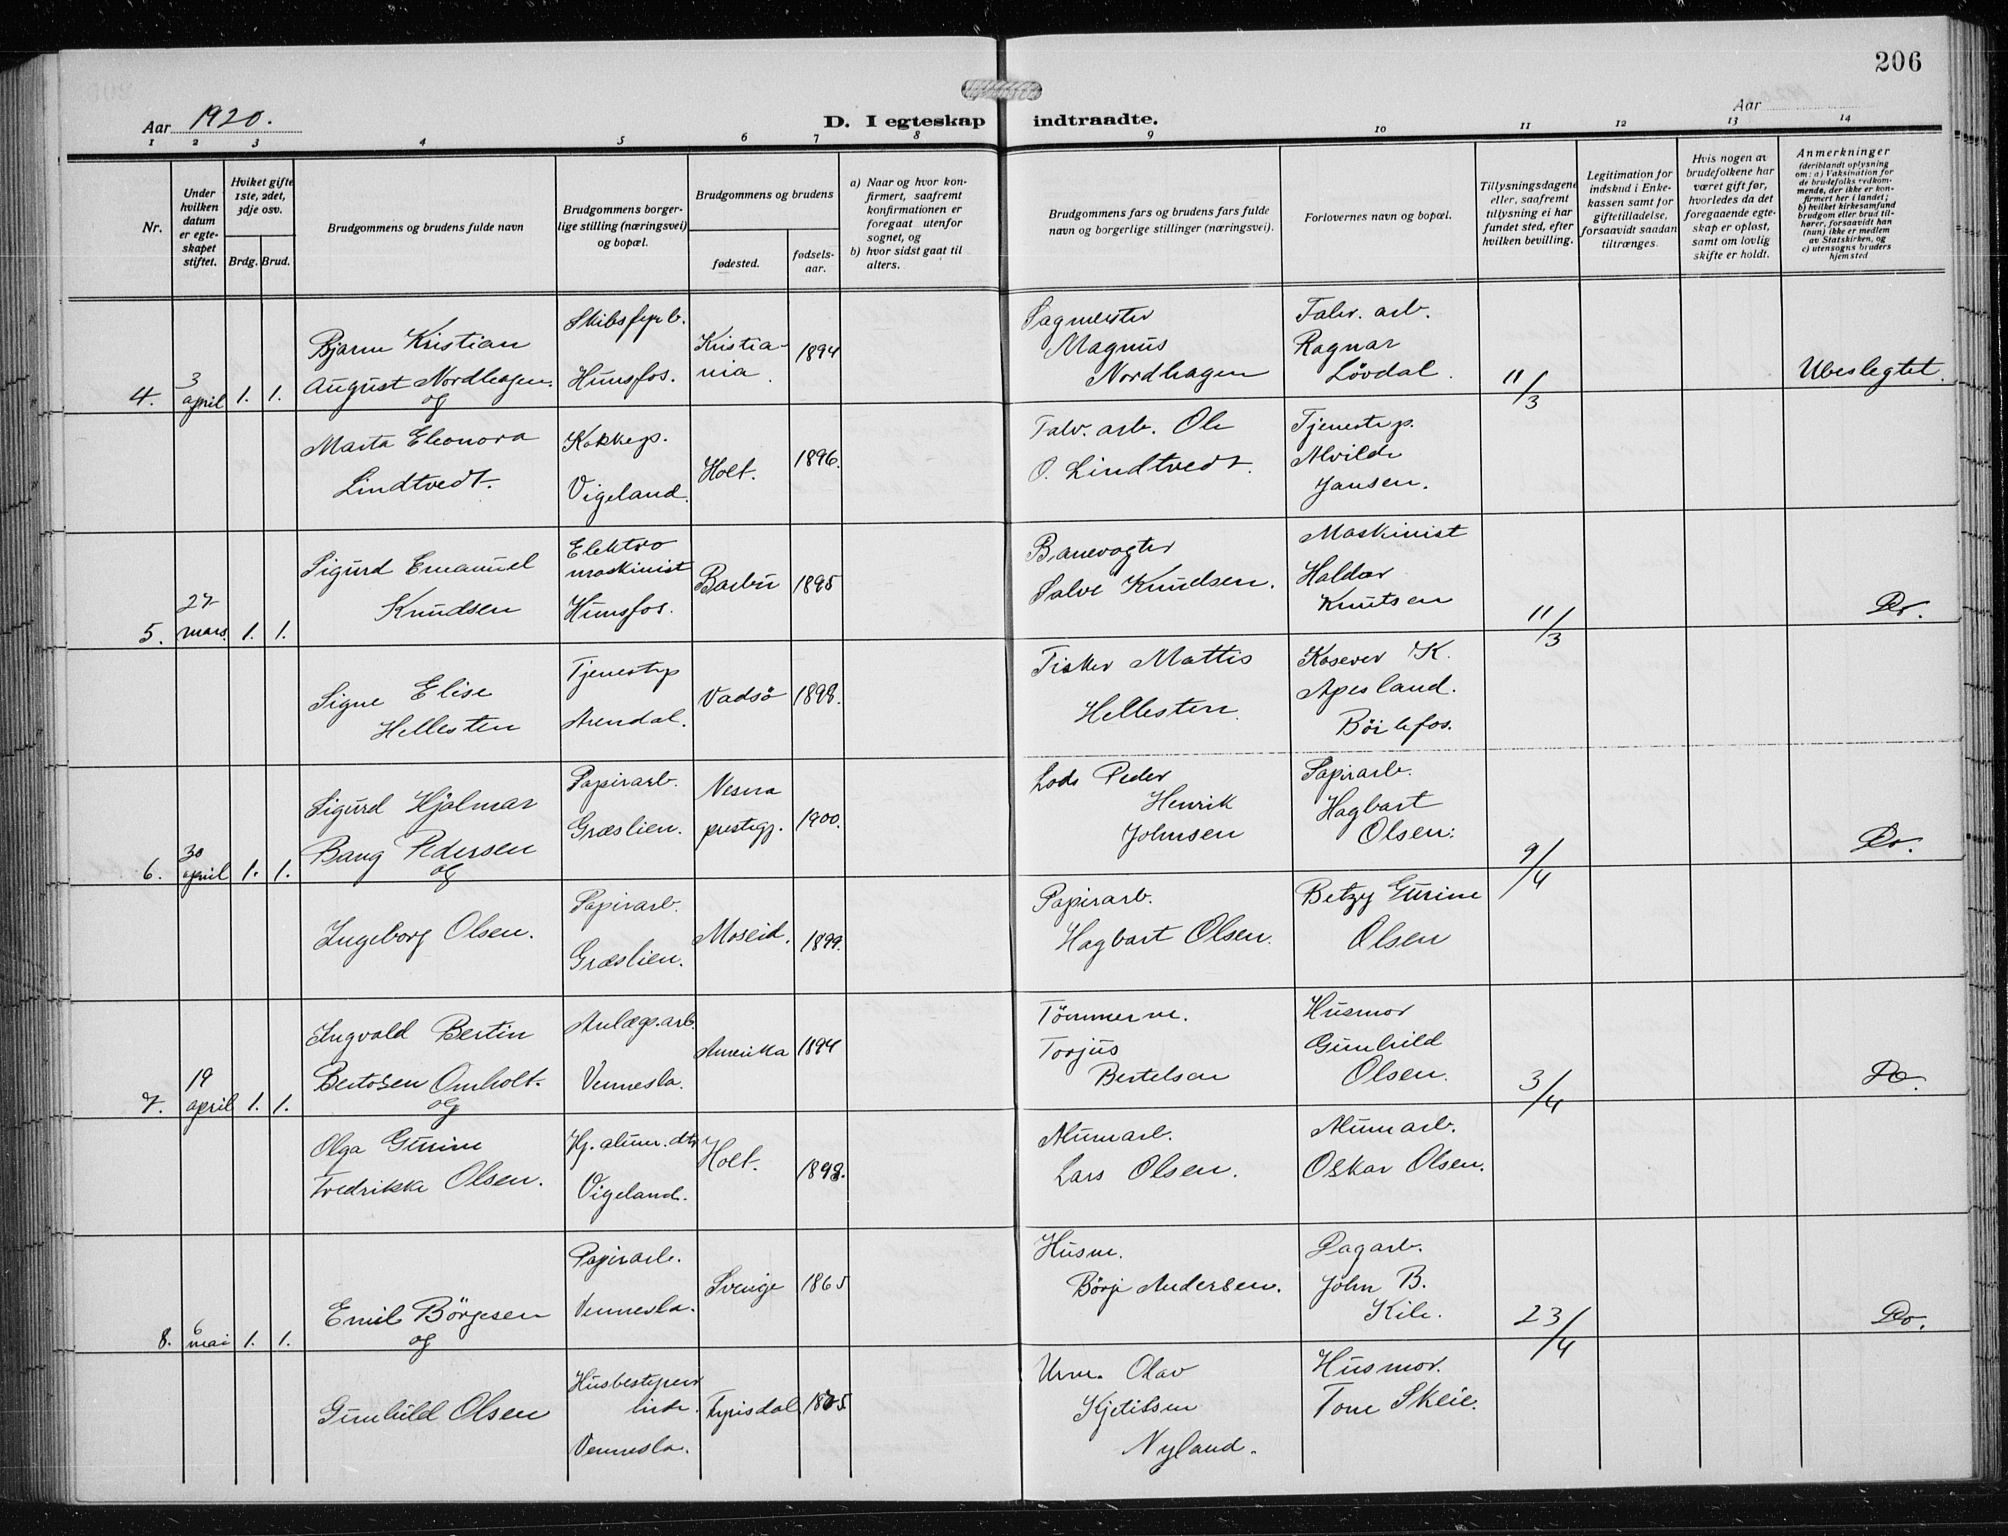 206
Aar 1920.
D. I egteskap indtraadte.
Aar
1 2 3 4 5 6 7 8 9 10 11 12 13 14
Nr.
Under hvilken datum er egteskapet stiftet.
Hviket gifte 1ste, 2det, 3dje osv.
Brdg. Brud.
Brudgommens og brudens fulde navn
Brudgommens borgerlige stilling (næringsvei) og bopæl.
Brudgommens og brudens
fødested.
fødselsaar.
a) Naar og hvor konfirmert, saafremt konfirmationen er foregaat utenfor sognet, og
b) hvor sidst gaat til alters.
Brudgommens fars og brudens fars fulde navn og borgerlige stillinger (næringsvei).
Forlovernes navn og bopæl.
Tillysningsdagene eller, saafremt tillysning ei har fundet sted, efter hvilken bevilling.
Legitimation for indskud i Enkekassen samt for giftetilladelse, forsaavidt saadan tiltrænges.
Hvis nogen av brudefolkene har været gift før, hvorledes da det foregaaende egteskap er opløst, samt om lovlig skifte er holdt.
Anmerkninger
(deriblandt oplysning om: a) Vaksination for de brudefolks vedkommende, der ikke er konfirmert her i landet; b) hvilket kirkesamfund brudgom eller brud tilhører, forsaavidt han (hun) ikke er medlem av Statskirken, og c) utensogns bruders hjemsted
4. 3 april 1. 1.
Bjarne Kristian
August Nordhagen
og
Hunsfos.
Kristiania.
1894
Sagmester
Magnus
Nordhagen
Fabr. arb.
Ragnar
Løvdal.
11/3
Ubeslegtet.
Marta Eleonora
Lindtvedt.
Kokkep.
Vigeland.
Holt.
1896.
Fabr. arb. Ole
O. Lindtvedt.
Tjenestep.
Alvilde
Jansen.
5. 27 mars. 1. 1.
Sigurd Emanuel
Knudsen
Elektro
maskinist
Hunsfos.
Barbu
1895
Banevogter
Salve Knudsen.
Maskinist
Haldor
Knutsen
11/3
Do.
Signe Elise
Hellesten
Tjenestep
Arendal.
Vadsö
1898.
Fisker Mattis
Hellesten.
Kaserer K.
Apesland.
Böilefos.
6. 30 april 1. 1.
Sigurd Hjalmar
Bang Pedersen
og
Papirarb.
Græslien.
Nesna
prestegj.
1900.
Lods Peder
Henrik
Johnsen
Papirarb.
Hagbart
Olsen.
9/4
Do.
Ingeborg Olsen.
Papirarb.
Græslien.
Moseid.
1899.
Papirarb.
Hagbart Olsen.
Betzy Gurine
Olsen
7. 19 april 1. 1.
Ingvald Bertin
Omholt.
og
Anlægs.arb.
Vennesla.
Amerika
1894
Tömmerm.
Torjus
Bertelsen
Husmor
Gunhild
Olsen.
3/4
Do.
Olga Gurine
Fredrikke Olsen.
Hj. alum. dtr
Vigeland.
Holt.
1898.
Alumarb.
Lars Olsen.
Alumarb.
Oskar Olsen.
8. 6 mai 1. 1.
Emil Börgesen
og
Papirarb.
Vennesla.
Sverige
1865
Husm.
Börje Andersen.
Dagarb.
John B.
Kile.
23/4
Do.
Gunhild Olsen
Husbestyrer
inde.
Vennesla.
Fyrisdal
1875
Olav
Kjetilsen
Nyland.
Husmor.
Tone Skeie.